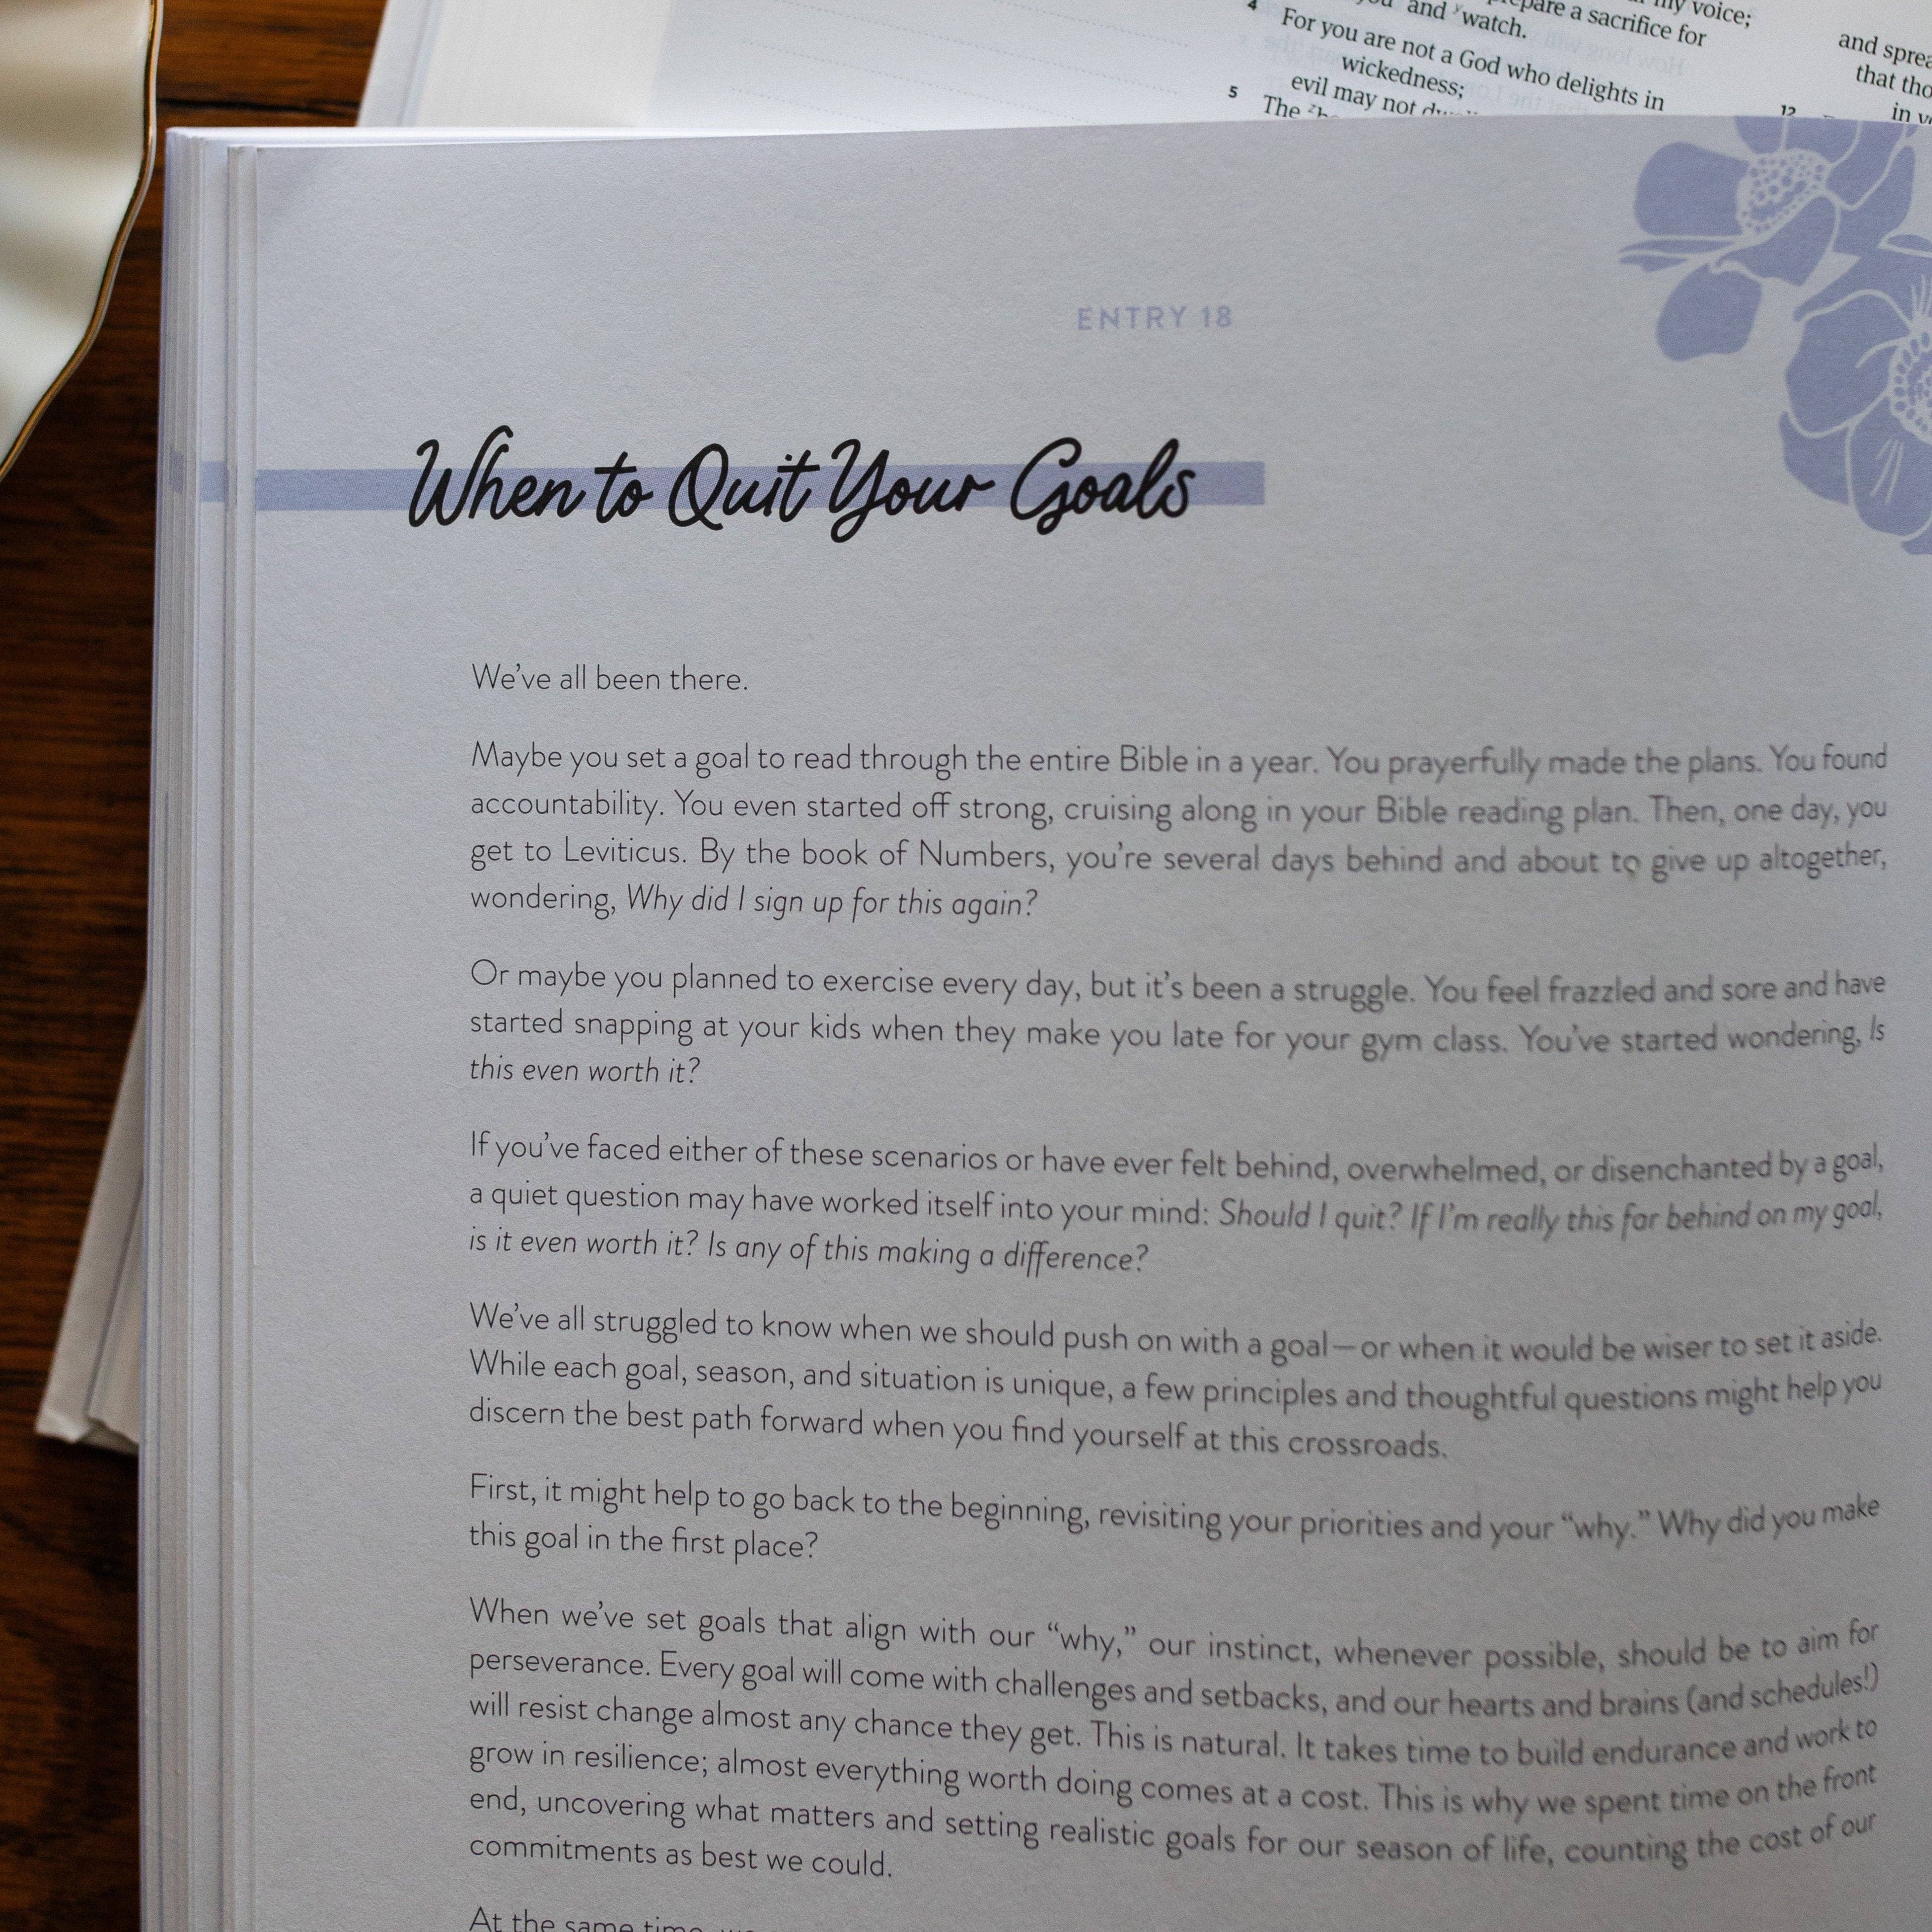 my voice;
prepare a sacrifice for
and ʸwatch.
4 For you are not a God who delights in
wickedness;
evil may not
5 The
and
that
in
12
ENTRY 18
When to Quit Your Goals
We’ve all been there.
Maybe you set a goal to read through the entire Bible in a year. You prayerfully made the plans. You found
accountability. You even started off strong, cruising along in your Bible reading plan. Then, one day, you
get to Leviticus. By the book of Numbers, you’re several days behind and about to give up altogether,
wondering, Why did I sign up for this again?
Or maybe you planned to exercise every day, but it’s been a struggle. You feel frazzled and sore and have
started snapping at your kids when they make you late for your gym class. You’ve started wondering, Is
this even worth it?
If you’ve faced either of these scenarios or have ever felt behind, overwhelmed, or disenchanted by a goal,
a quiet question may have worked itself into your mind: Should I quit? If I’m really this far behind on my goal,
is it even worth it? Is any of this making a difference?
We’ve all struggled to know when we should push on with a goal—or when it would be wiser to set it aside.
While each goal, season, and situation is unique, a few principles and thoughtful questions might help you
discern the best path forward when you find yourself at this crossroads.
First, it might help to go back to the beginning, revisiting your priorities and your “why.” Why did you make
this goal in the first place?
When we’ve set goals that align with our “why,” our instinct, whenever possible, should be to aim for
perseverance. Every goal will come with challenges and setbacks, and our hearts and brains (and schedules!)
will resist change almost any chance they get. This is natural. It takes time to build endurance and work to
grow in resilience; almost everything worth doing comes at a cost. This is why we spent time on the front
end, uncovering what matters and setting realistic goals for our season of life, counting the cost of our
commitments as best we could.
At the same time,